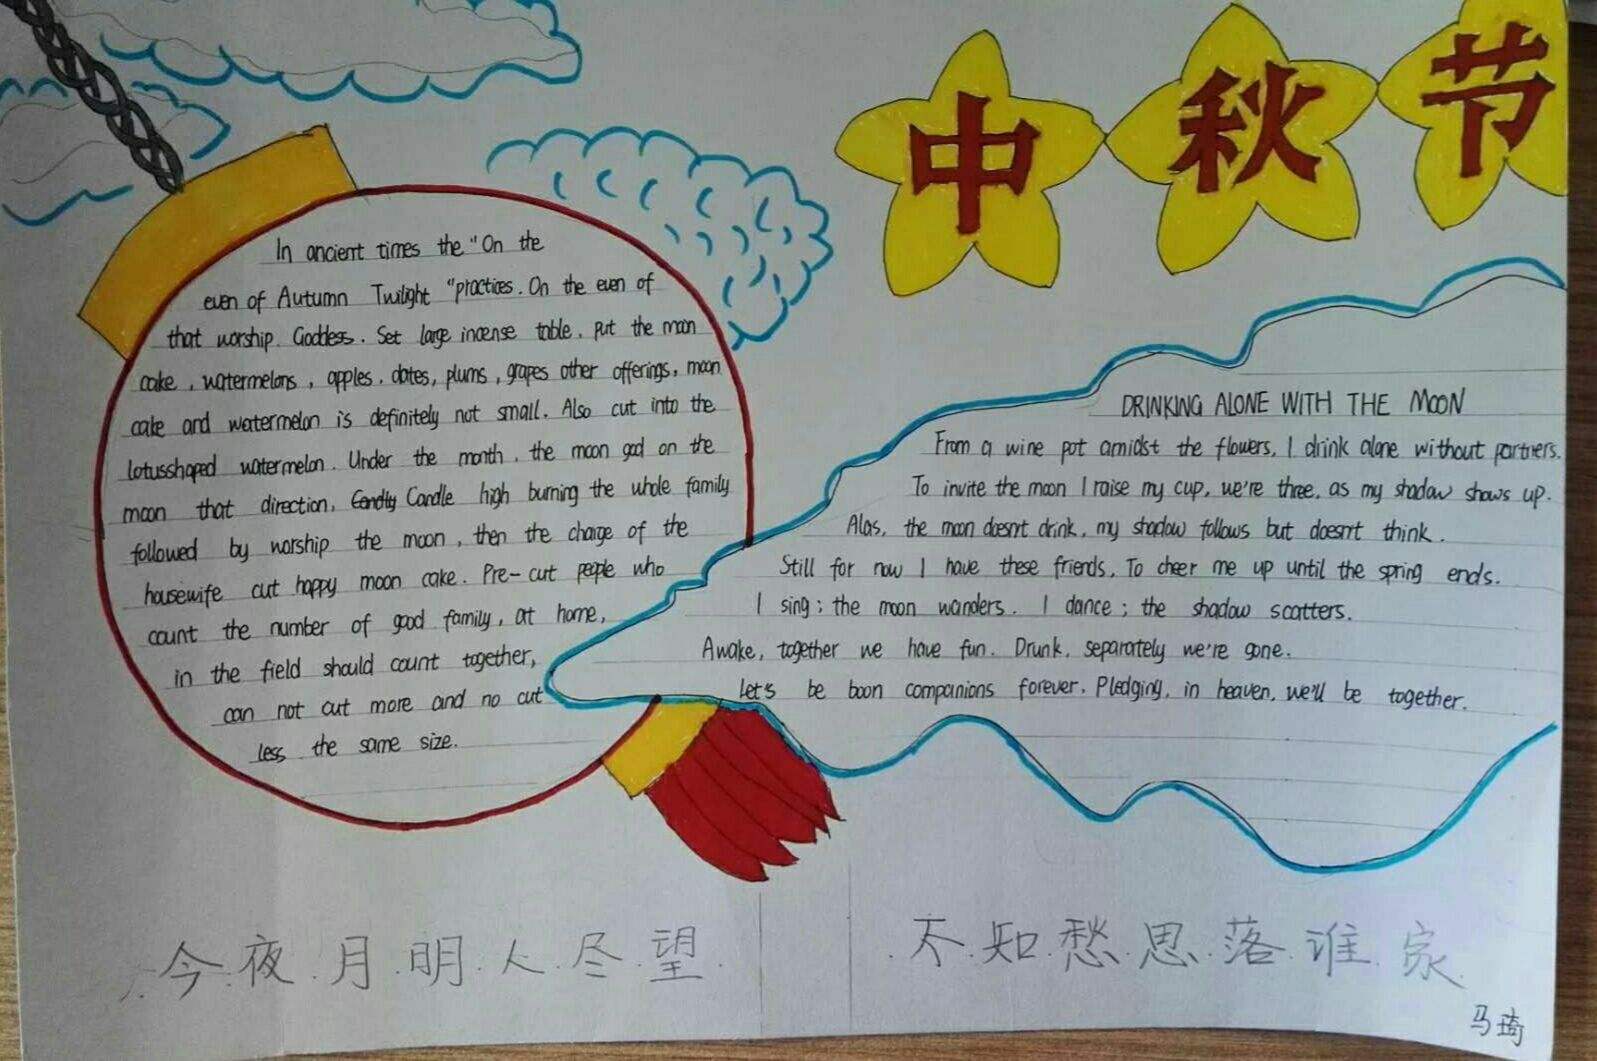 中秋节
In ancient times the "On the
even of Autumn Twilight "practices. On the even of
that worship Goddess. Set large incense table, put the moon
cake, watermelons, apples, dates, plums, grapes other offerings, moon
cake and watermelon is definitely not small. Also cut into the
lotusshaped watermelon. Under the month, the moon god on the
moon that direction, Candle high burning the whole family
followed by worship the moon, then the charge of the
housewife cut happy moon cake. Pre-cut people who
count the number of good family, at home,
in the field should count together,
can not cut more and no cut
less the same size.
DRINKING ALONE WITH THE MOON
From a wine pot amidst the flowers, I drink alone without partners.
To invite the moon I raise my cup, we're three, as my shadow shows up.
Alas, the moon doesn't drink, my shadow follows but doesn't think.
Still for now I have these friends, To cheer me up until the spring ends.
I sing; the moon wanders. I dance; the shadow scatters.
Awake, together we have fun. Drunk, separately we're gone.
Let's be boon companions forever, Pledging, in heaven, we'll be together.
今夜月明人尽望
不知愁思落谁家
马琦